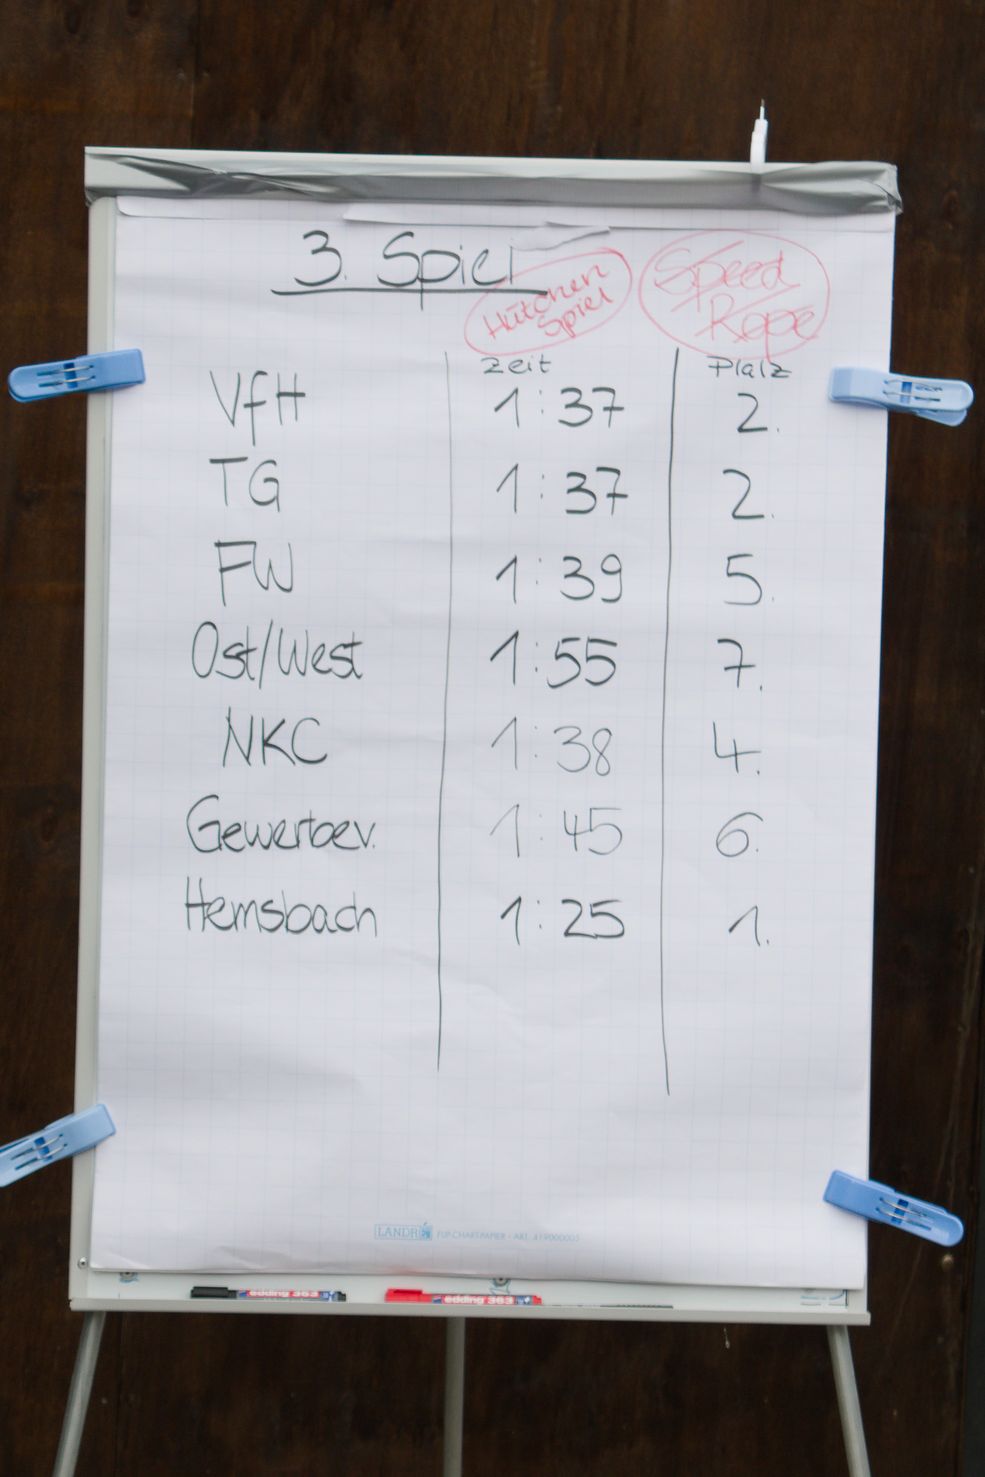 3. Spiel
Hütchen Spiel
Speed Rope
Zeit Platz
VfH 1:37 2.
TG 1:37 2.
FW 1:39 5.
Ost/West 1:55 7.
NKC 1:38 4.
Gewerbev. 1:45 6.
Hemsbach 1:25 1.
LANDRÉ FLIP-CHARTPAPIER - ART. 419000005
edding 363 edding 363